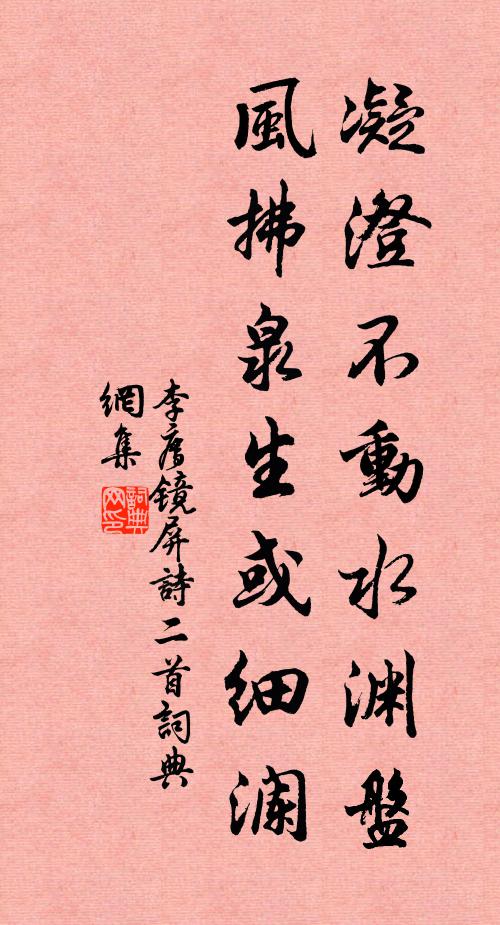 凝澄不動水渊盤
風拂泉生或细澜
李廌镜屏詩二首詞典
網集
詞典
网印